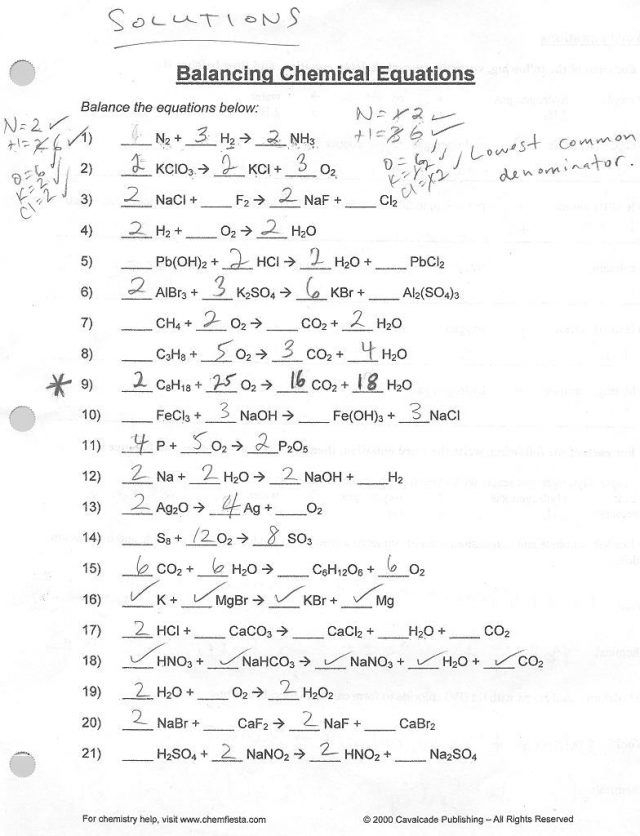 SOLUTIONS
Balancing Chemical Equations
Balance the equations below:
N=2 ✓
O=6 ✓
K=2 ✓
Cl=2 ✓
Lowest common
denominator.
1) ____ N₂ + 3 H₂ → 2 NH₃
2) 2 KClO₃ → 2 KCl + 3 O₂
3) 2 NaCl + ____ F₂ → 2 NaF + ____ Cl₂
4) 2 H₂ + ____ O₂ → 2 H₂O
5) ____ Pb(OH)₂ + 2 HCl → 2 H₂O + ____ PbCl₂
6) 2 AlBr₃ + 3 K₂SO₄ → 6 KBr + ____ Al₂(SO₄)₃
7) ____ CH₄ + 2 O₂ → ____ CO₂ + 2 H₂O
8) ____ C₃H₈ + 5 O₂ → 3 CO₂ + 4 H₂O
* 9) 2 C₈H₁₈ + 25 O₂ → 16 CO₂ + 18 H₂O
10) ____ FeCl₃ + 3 NaOH → ____ Fe(OH)₃ + 3 NaCl
11) 4 P + 5 O₂ → 2 P₂O₅
12) 2 Na + 2 H₂O → 2 NaOH + ____ H₂
13) 2 Ag₂O → 4 Ag + ____ O₂
14) ____ S₈ + 12 O₂ → 8 SO₃
15) 6 CO₂ + 6 H₂O → ____ C₆H₁₂O₆ + 6 O₂
16) ✓ K + ✓ MgBr → ✓ KBr + ✓ Mg
17) 2 HCl + ____ CaCO₃ → ____ CaCl₂ + ____ H₂O + ____ CO₂
18) ✓ HNO₃ + ✓ NaHCO₃ → ✓ NaNO₃ + ✓ H₂O + ✓ CO₂
19) 2 H₂O + ____ O₂ → 2 H₂O₂
20) 2 NaBr + ____ CaF₂ → 2 NaF + ____ CaBr₂
21) ____ H₂SO₄ + 2 NaNO₂ → 2 HNO₂ + ____ Na₂SO₄
For chemistry help, visit www.chemfiesta.com © 2000 Cavalcade Publishing – All Rights Reserved